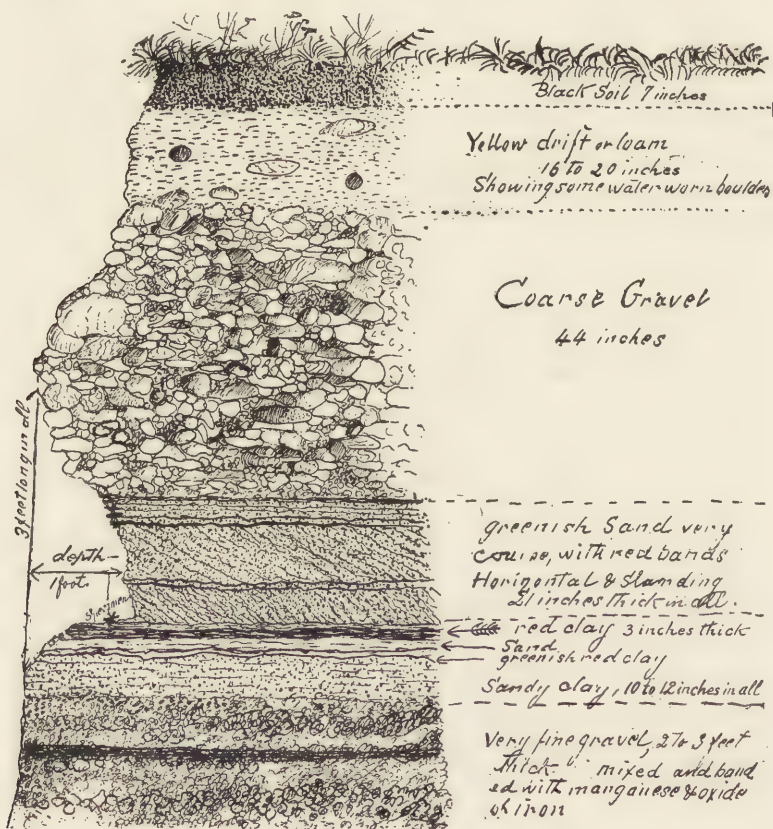 Black Soil 7 inches
Yellow drift or loam
16 to 20 inches
Showing some water worn boulders
Coarse Gravel
44 inches
3 feet long in all
greenish Sand very
course, with red bands
Horizontal & Slanding
21 inches thick in all.
depth
1 foot.
Specimen
red clay 3 inches thick
Sand
greenish red clay
Sandy clay, 10 to 12 inches in all
Very fine gravel, 2 to 3 feet
thick. mixed and band
ed with manganese & oxide
of iron